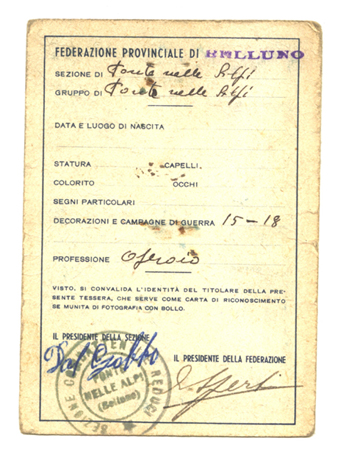 FEDERAZIONE PROVINCIALE DI BELLUNO
SEZIONE DI Ponte nelle Alpi
GRUPPO DI Ponte nelle Alpi
DATA E LUOGO DI NASCITA
STATURA CAPELLI
COLORITO OCCHI
SEGNI PARTICOLARI
DECORAZIONI E CAMPAGNE DI GUERRA 15-18
PROFESSIONE Operaio
VISTO, SI CONVALIDA L'IDENTITÀ DEL TITOLARE DELLA PRE-
SENTE TESSERA, CHE SERVE COME CARTA DI RICONOSCIMENTO
SE MUNITA DI FOTOGRAFIA CON BOLLO.
IL PRESIDENTE DELLA SEZIONE
IL PRESIDENTE DELLA FEDERAZIONE
SEZIONE COMBATTENTI REDUCI
PONTE
NELLE ALPI
(Belluno)